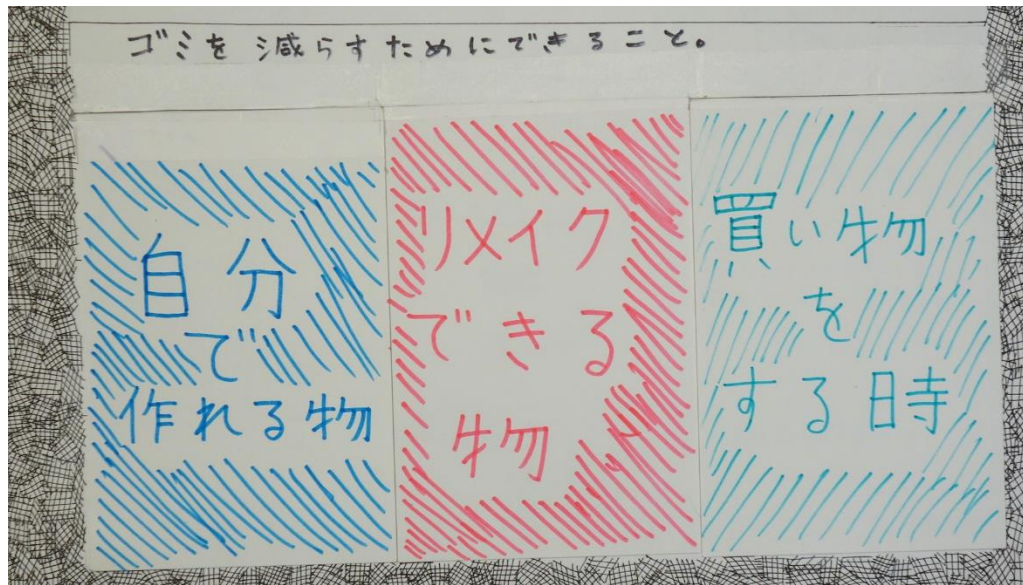 ゴミを減らすためにできること。
自分
で
作れる物
リメイク
できる
物
買い物
を
する時